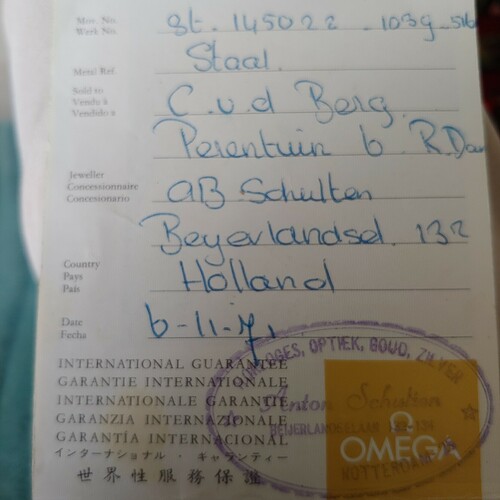 Mvt. No.
Werk No.
St. 145022 - 1039 - 516
Staal.
Metal Ref.
Sold to
Vendu à
Vendido a
C.v.d Berg.
Perentuin 6 R.Dam
Jeweller
Concessionnaire
Concesionario
AB Schulten
Beyerlandsel. 132
Country
Pays
País
Holland
Date
Fecha
6-11-71
INTERNATIONAL GUARANTEE
GARANTIE INTERNATIONALE
INTERNATIONALE GARANTIE
GARANZIA INTERNAZIONALE
GARANTÍA INTERNACIONAL
インターナショナル・ギャランティー
世界性服務保證
HORLOGES, OPTIEK, GOUD, ZILVER
Anton Schulten
BEIJERLANDSELAAN
ROTTERDAM
OMEGA